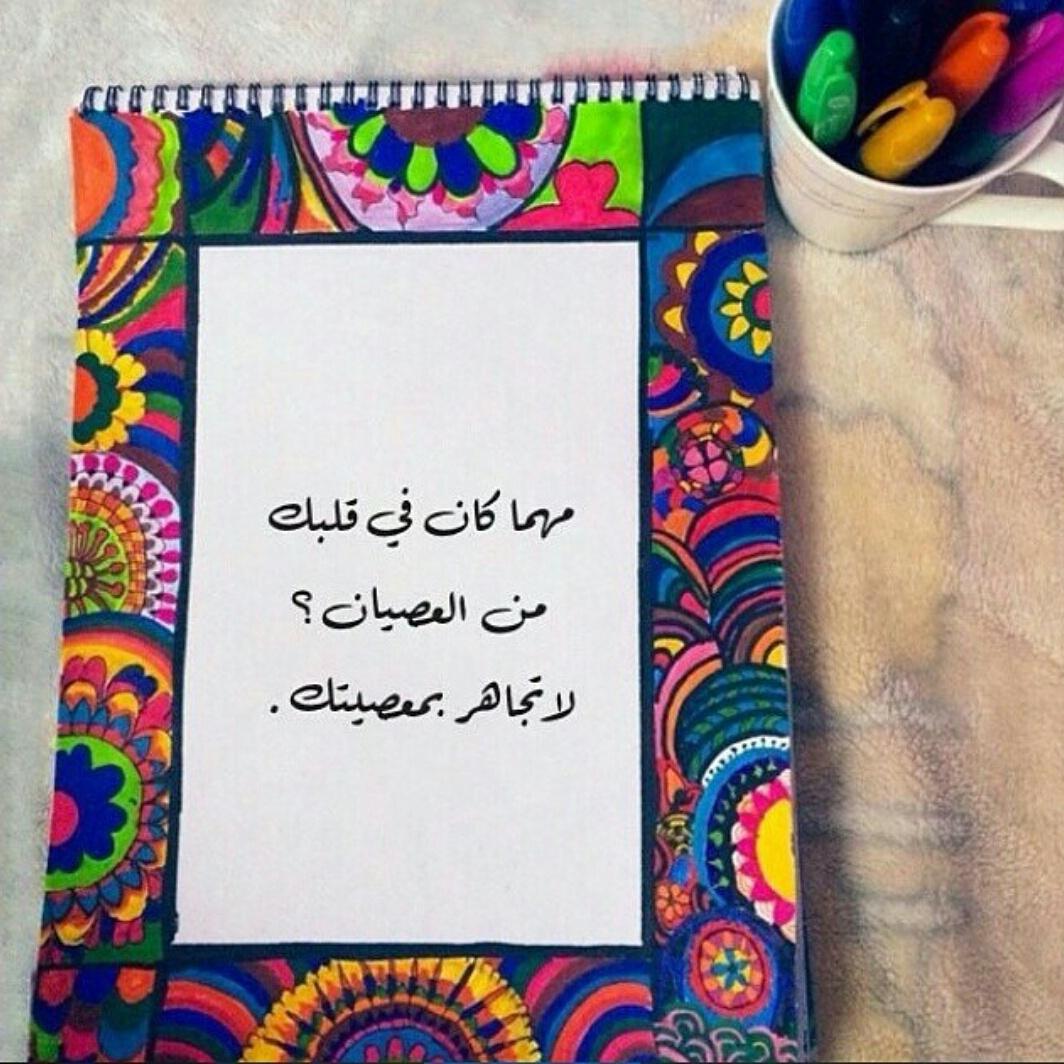 مهما كان في قلبك
من العصيان ؟
لا تجاهر بمعصيتك .